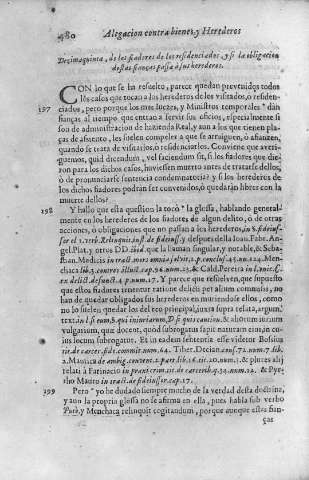 480 Alegacion contra bienes, y Herederos
Dezimaquinta, de los fiadores de los residenciados, y si la obligacion
destas fianças passa a sus herederos.
CON lo que se ha resuelto, parece quedan prevenidos todos
los casos que tocan a los herederos de los visitados, ò residen-
197 ciados, pero porque los mas Iuezes, y Ministros temporales dan
fianças al tiempo que entran a servir sus oficios, especialmente si
son de administracion de hazienda Real, y aun a los que tienen pla-
ças de assiento, los suelen compeler a que se arraiguen, ò afiancen,
quando se trata de visitarlos, ò residenciarlos. Conviene que averi-
guemos, quid dicendum, vel faciendum sit, si los fiadores que die-
ron para los dichos casos, huviessen muerto antes de tratarse dellos,
ò de pronunciarse sentencia condemnatoria? y si los herederos de
los dichos fiadores podran ser convenidos, ò quedaràn libres con la
muerte dellos?
198 Y hallo que esta question la tocò la glossa, hablando general-
mente en los herederos de los fiadores de algun delito, ò de otras
acciones, ò obligaciones que no passan a los herederos, in §. fideius-
sor el 1. verb. Relinquit, inst. de fideiuss. y despues della Ioan. Fabr. An-
gel. Plat. y otros DD. ibid. que la llaman singular, y notable, & Sebas-
tian. Medicis in tract. mors omnia solvit, 2. p. conclus. 45. nu. 124. Men-
chaca lib. 3. controv. illust. cap. 96. num. 23. & Cald. Pereira in l. unic. C.
ex delict. defunct. 4. p. num. 17. Y parece que resuelven, que supuesto
que estos fiadores tenentur ratione delicti per alium commissi, no
han de quedar obligados sus herederos en muriendose ellos, como
no lo suelen quedar los del reo principal, iuxta supra relata, argum.
text. in l. si eum, §. qui iniuriarum, D. si quis cautio. & aliorum iurium
vulgarium, que docent, quòd subrogatus sapit naturam eius, in cu-
ius locum subrogatur. Et in eadem sententia esse videtur Bossius
tit. de carcer. fide. commit. num. 64. Tiber. Decian. cons. 72. num. 7. lib.
2. Mantica de ambig. convent. 2. part. lib. 16. tit. 20. num. 1. & plures alij
relati à Farinacio in praxi crim. tit. de carcerib. q. 34. num. 12. & Pyr-
rho Mauro in tract. de fideiussor. cap. 17.
199 Pero yo he dudado siempre mucho de la verdad desta doctrina,
y aun la propria glossa no se afirma en ella, pues habla sub verbo
Puto, y Menchaca relinquit cogitandum, porque aunque estas fian-
ças